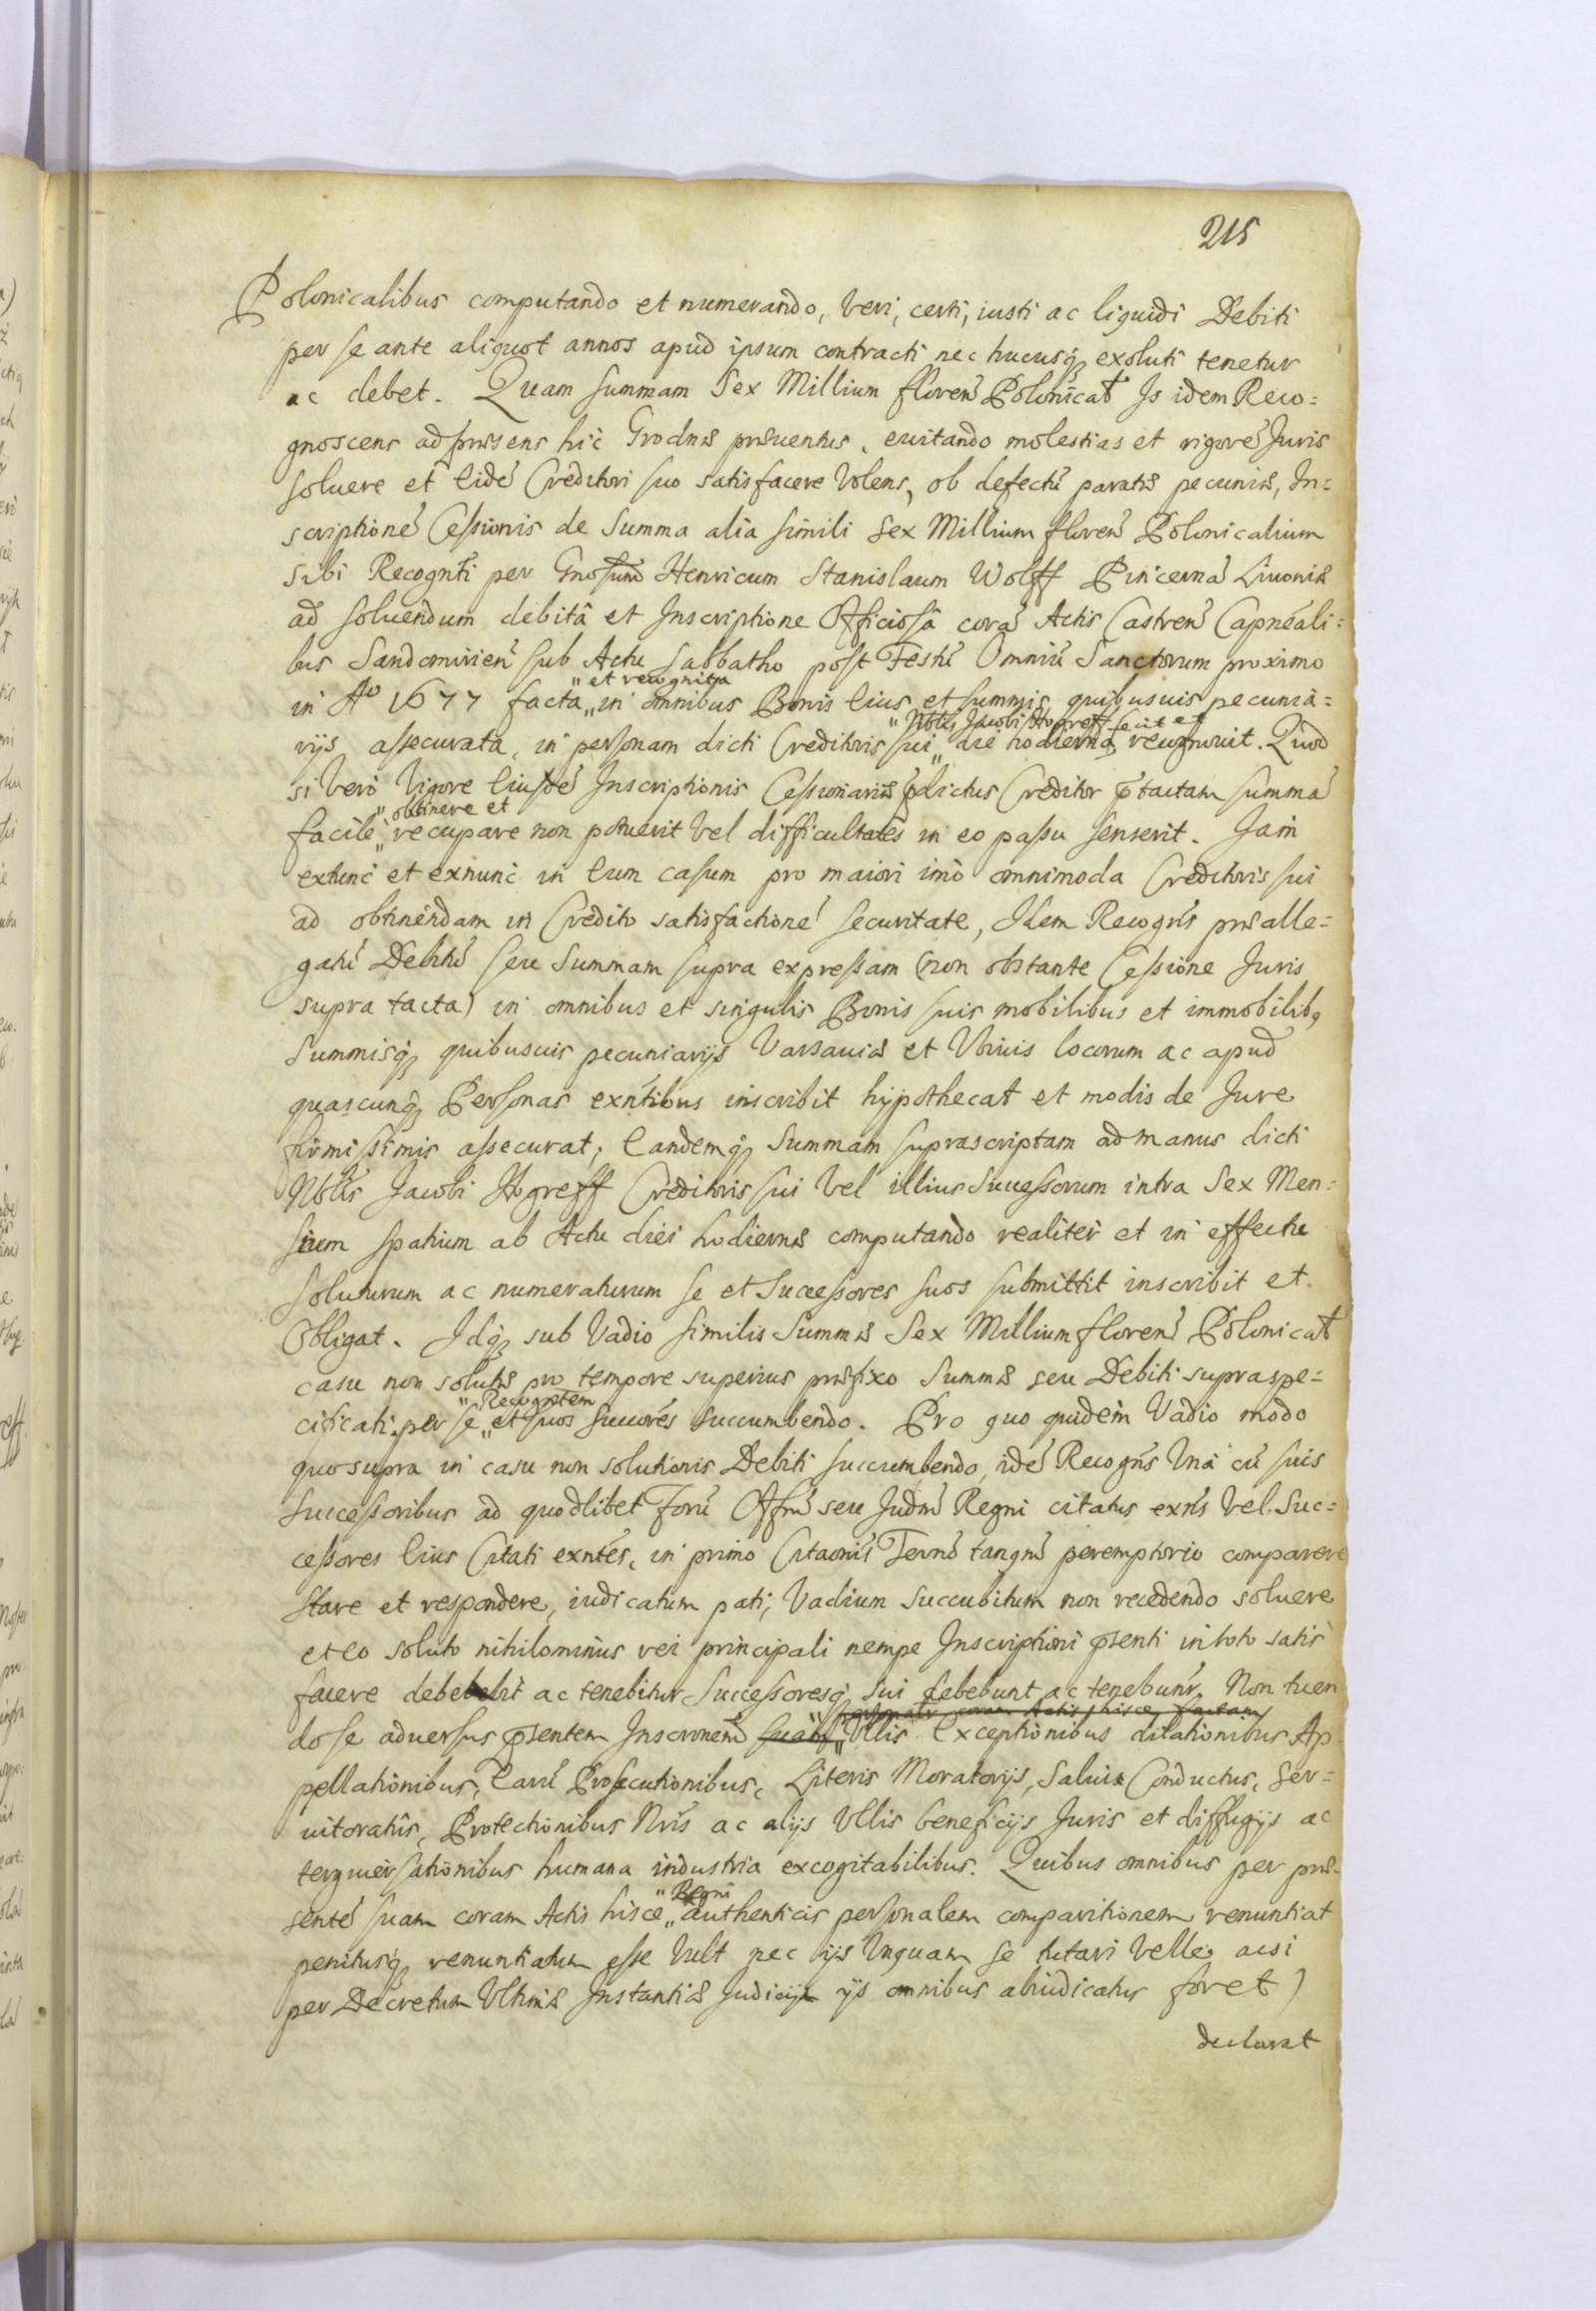 215
Polonicalibus computando et numerando, veri, certi, iusti ac liquidi Debiti
per se ante aliquot annos apud ipsum contracti nec hucusq exoluti tenetur
ac debet. Quam summam Sex Millium floren Polonical Is idem Reco=
gnoscens ad præsens hic Grodnæ præuentus, euitando molestias et rigore Juris
soluere et eide Creditori suo satisfacere volens, ob defectu paratæ pecuniæ, In=
scriptione Cessionis de Summa alia simili Sex Millium floren Polonicalium
sibi Recognti per Gnosum Henricum Stanislaum Wolff Pincerna Liuoniæ
ad soluendum debitâ et Inscriptione Officiosâ cora Actis Castren Capneali=
bus Sandomirien sub Actu Sabbatho post Festu Omniu Sanctorum proximo
" et recognita
in Ao 1677 facta " in omnibus Bonis eius et summis quibusuis pecunia=
" Nblis Jacobi Hogreff
rijs assecurata, in personam dicti Creditoris sui " die hodierna recognouit. Quod
si vero vigore eiusde Inscriptionis Cessionariæ pdictus Creditor ptactam summa
" obtinere et
facile " recupare non potuerit vel difficultates in eo passu senserit. Jam
extunc et exnunc in eum casum pro maiori imò omnimoda Creditoris sui
ad obtinendam in Credito satisfactione securitate, Idem Recogns præalle=
gatu Debitu seu Summam supra expressam (non obstante Cessione Juris
supra tacta) in omnibus et singulis Bonis suis mobilibus et immobilibq
Summisq quibusuis pecuniarijs Varsauiæ et Vbiuis locorum ac apud
quascunq Personas exntibus inscribit hypothecat et modis de Jure
firmissimis assecurat, Eandemq Summam suprascriptam ad manus dicti
Nblis Jacobi Hogreff Creditoris sui vel illius Successorum intra Sex Men=
sium spatium ab Actu diei hodiernæ computando realiter et in effectu
soluturum ac numeraturum se et Successores suos submittit inscribit et
Obligat. Idq sub Vadio similis Summæ Sex Millium floren Polonical
casu non solutæ pro tempore superius præfixo Summæ seu Debiti supraspe=
" Recogntem
cificati per se " et suos Succores succumbendo. Pro quo quidem Vadio modo
quo supra in casu non solutionis Debiti succumbendo, ide Recogns Vna cu suis
Successoribus ad quodlibet Foru Offm seu Judm Regni citatus exns vel Suc=
cessores eius Citati exntes, in primo Citaonis Termo tanqm peremptorio comparere
stare et respondere, iudicatum pati, Vadium succubitum non recedendo soluere
et eo soluto nihilominus rei principali nempe Inscriptioni psenti in toto satis
facere debebit ac tenebitur Successoresq sui debebunt ac tenebunr. Non tuen
personalr coram Actis hisce factam
do se aduersus psentem Inscronem suam " Vllis Exceptionibus dilationibus Ap
pellationibus, earu Prosecutionibus, Literis Moratorijs, Salui Conductus, Ser=
uitoratûs, Protectionibus Nris ac alijs Vllis beneficijs Juris et diffugijs ac
terguiersationibus humana industria excogitabilibus. Quibus omnibus per præ=
" Regni
sente suam coram Actis hisce " authenticis personalem comparitionem renuntiat
penitusq renuntiatum esse vult nec ijs Vnquam se tutari velle, acsi
per Decretum Vltimæ Instantiæ Judicij ijs omnibus abiudicatus foret)
declarat